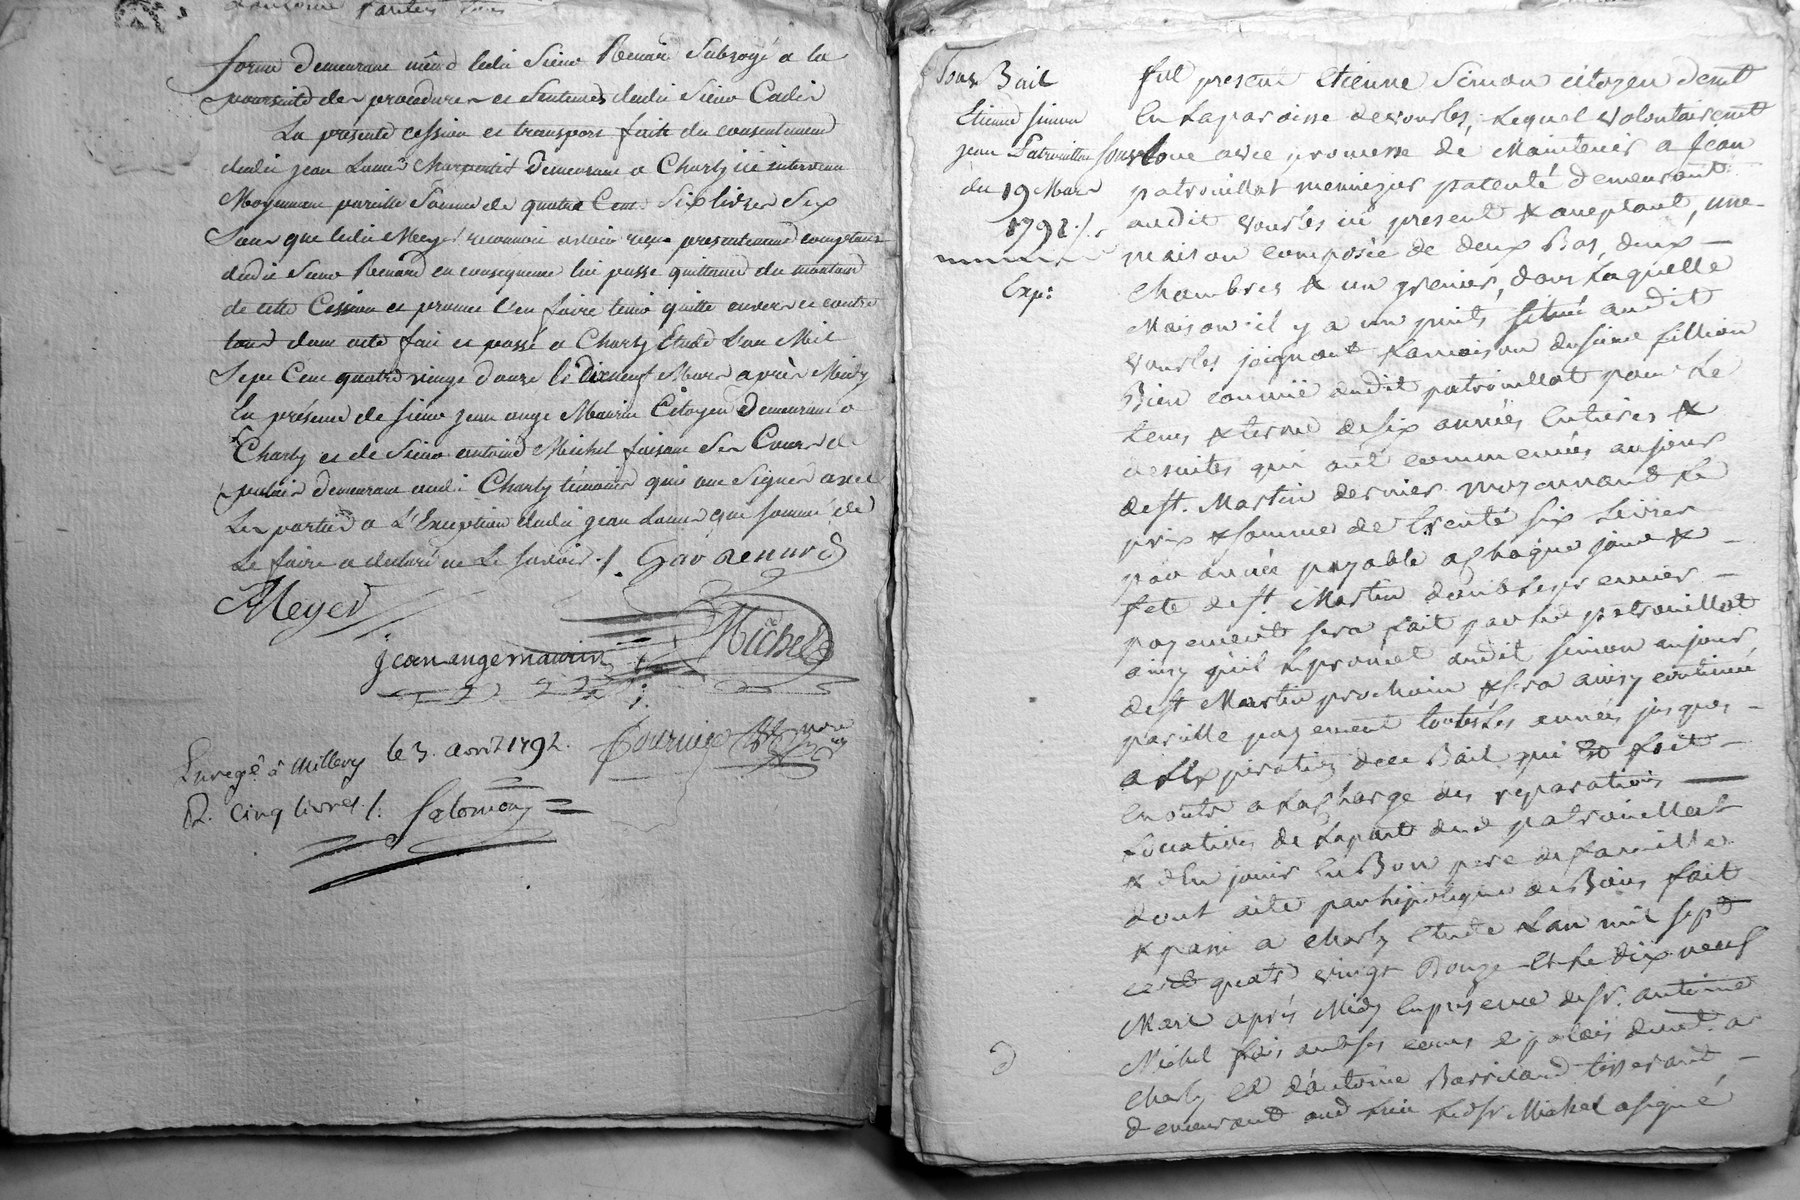 forme demeurant même ledit Sieur Renard Subrogé a la
poursuitte des procedures et Sentences dudit Sieur Cadier
La presente cession et transport faitte du consentement
dudit jean Charpentier demeurant a Charly ici intervenu
Moyennant pareille Somme de quatre Cent Six livres Six
Sous que ledit Meyer reconnoit avoir reçu presentement comptant
dudit Sieur Renard en consequence lui passe quittance du montant
de cette Cession et promet l'en faire tenir quitte envers et contre
tous dont acte fait et passé a Charly Etude L'an Mil
Sept Cent quatre vingt douze le dixneuf Mars après Midy
En présence de Sieur jean ange Maurin Citoyen demeurant a
Charly et de Sieur antoine Michel faisant Ses Cours de
palais demeurant audit Charly témoins qui ont Signés avec
Les parties a L'Exception dudit jean que sommé de
Le faire a declaré ne Le Savoir ./. renard
Meyer
jean ange maurin Michel
Enregé à Millery le 3. avril 1792.
R. cinq livres /. Salomon
Sous Bail
Etienne simon
jean Patrouillat
du 19 Mars
1792 ./.
Exp:
fut present Etienne Simon citoyen demt
En La paroisse de vourles, Lequel volontairemt
Sousloue avec promesse de Maintenir a Jean
patrouillat menuizier patenté demeurant
audit vourles ici present & aceptant, une
maison composée de deux Bas, deux
chambres & un grenier, dans Laquelle
Maison il y a un puits situé audit
vourles joignant La maison du sieur fillion
Bien connüe audit patrouillat pour Le
tems & terme de six années Entieres &
desuites qui ont commencées au jour
de st. Martin dernier moyennant Le
prix & somme de trente six Livres
par année payable a chaque jour &
fete de st. Martin dont Le premier
payement sera fait par led patrouillat
ainsy qu'il Le promet audit simon au jour
de st Martin prochain & sera ainsy continué
pareille payement toutes Les années jusques
a L'Expiration de ce Bail qui Est fait
En outre a La charge des reparations
Locatives de La part dud patrouillat
& d'En jouir En Bon pere de famille
dont acte par hipoteque de Biens fait
& passé a Charly Etude L'an mil sept
cent quatre vingt Douze Et Le dix neuf
Mars après Midy En presence de sr. antoine
Michel fais ant ses cours de palais demt a
Charly Et d'antoine tisserand
demeurant aud Lieu Ledsr Michel a signé